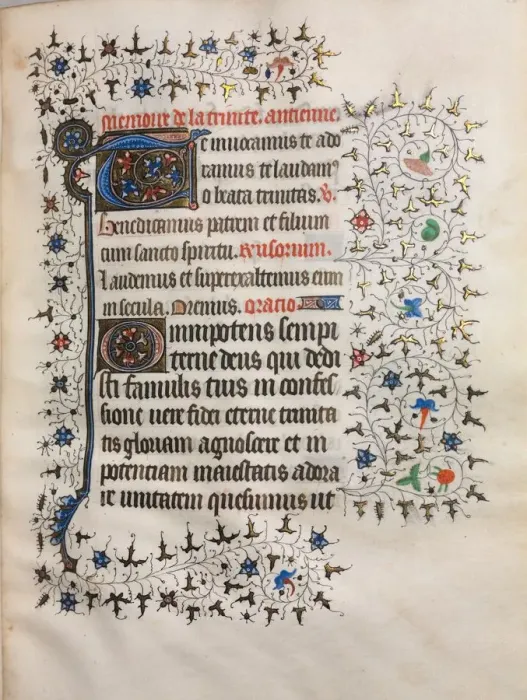 Memoire de la trinite. antienne.
Te inuocamus te ado
ramus te laudamꝰ
o beata trinitas. V.
Benedicamus patrem et filium
cum sancto spiritu. Reusorium.
Laudemus et superexaltemus eum
in secula. Oremus. oratio
Omnipotens sempi
terne deus qui dedi
sti famulis tuis in confes
sione uere fidei eterne trinita
tis gloriam agnoscere et in
potentiam maiestatis adora
re unitatem quesumus ut